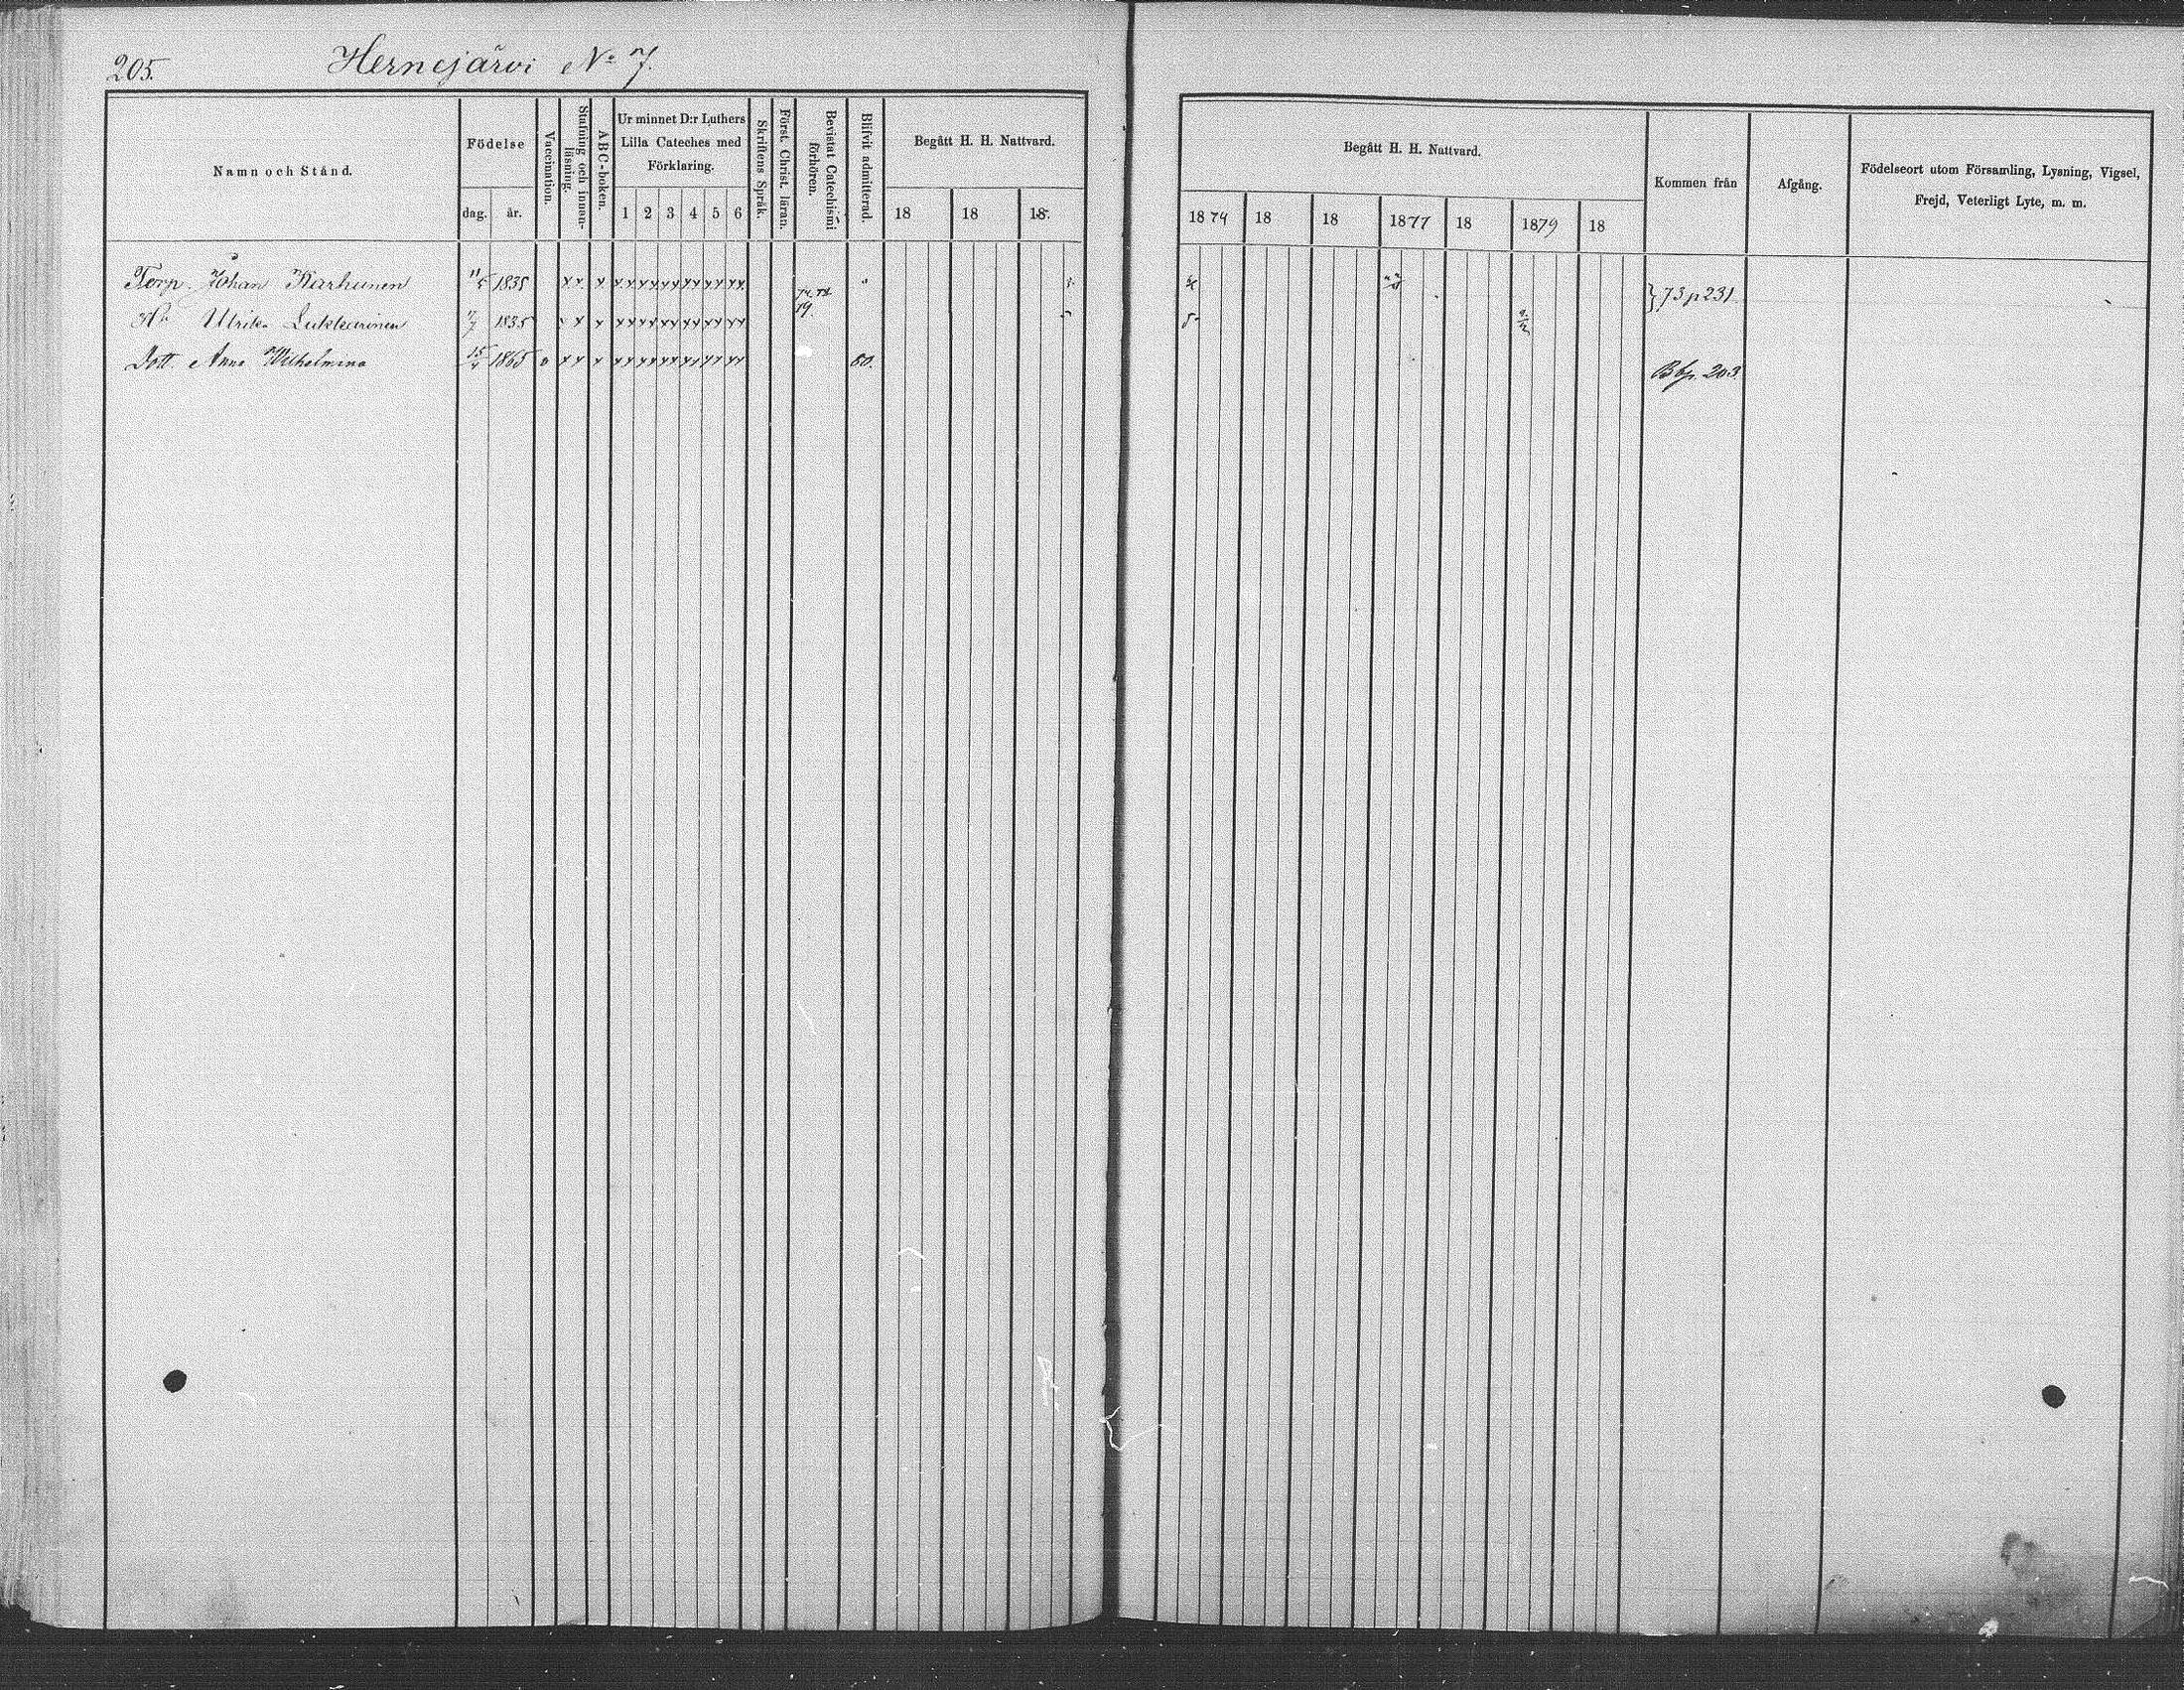 205.
Hernejärvi No 7.
Namn och Stånd.
Födelse
dag. år.
Vaccination.
Stafning och innanläsning.
ABC-boken.
Ur minnet D:r Luthers
Lilla Cateches med
Förklaring.
1 2 3 4 5 6
Skriftens Språk.
Först. Christ. läran.
Bevistat Catechismi förhören.
Blifvit admitterad.
Begått H. H. Nattvard.
18 18 18
Begått H. H. Nattvard.
1874 18 18 1877 18 1879 18
Kommen från
Afgång.
Födelseort utom Församling, Lysning, Vigsel,
Frejd, Veterligt Lyte, m. m.
Torp. Johan Karhunen 11/5 1835 x x x x x x x x x x x x x x x
} 73 p 231
Hu Ulrika 7/7 1835 x x x x x x x x x x x x x x
Dott. Anna Wilhelmina 15/4 1865 x x x x x x x x x x x x x x x 80.
Bb p. 203.